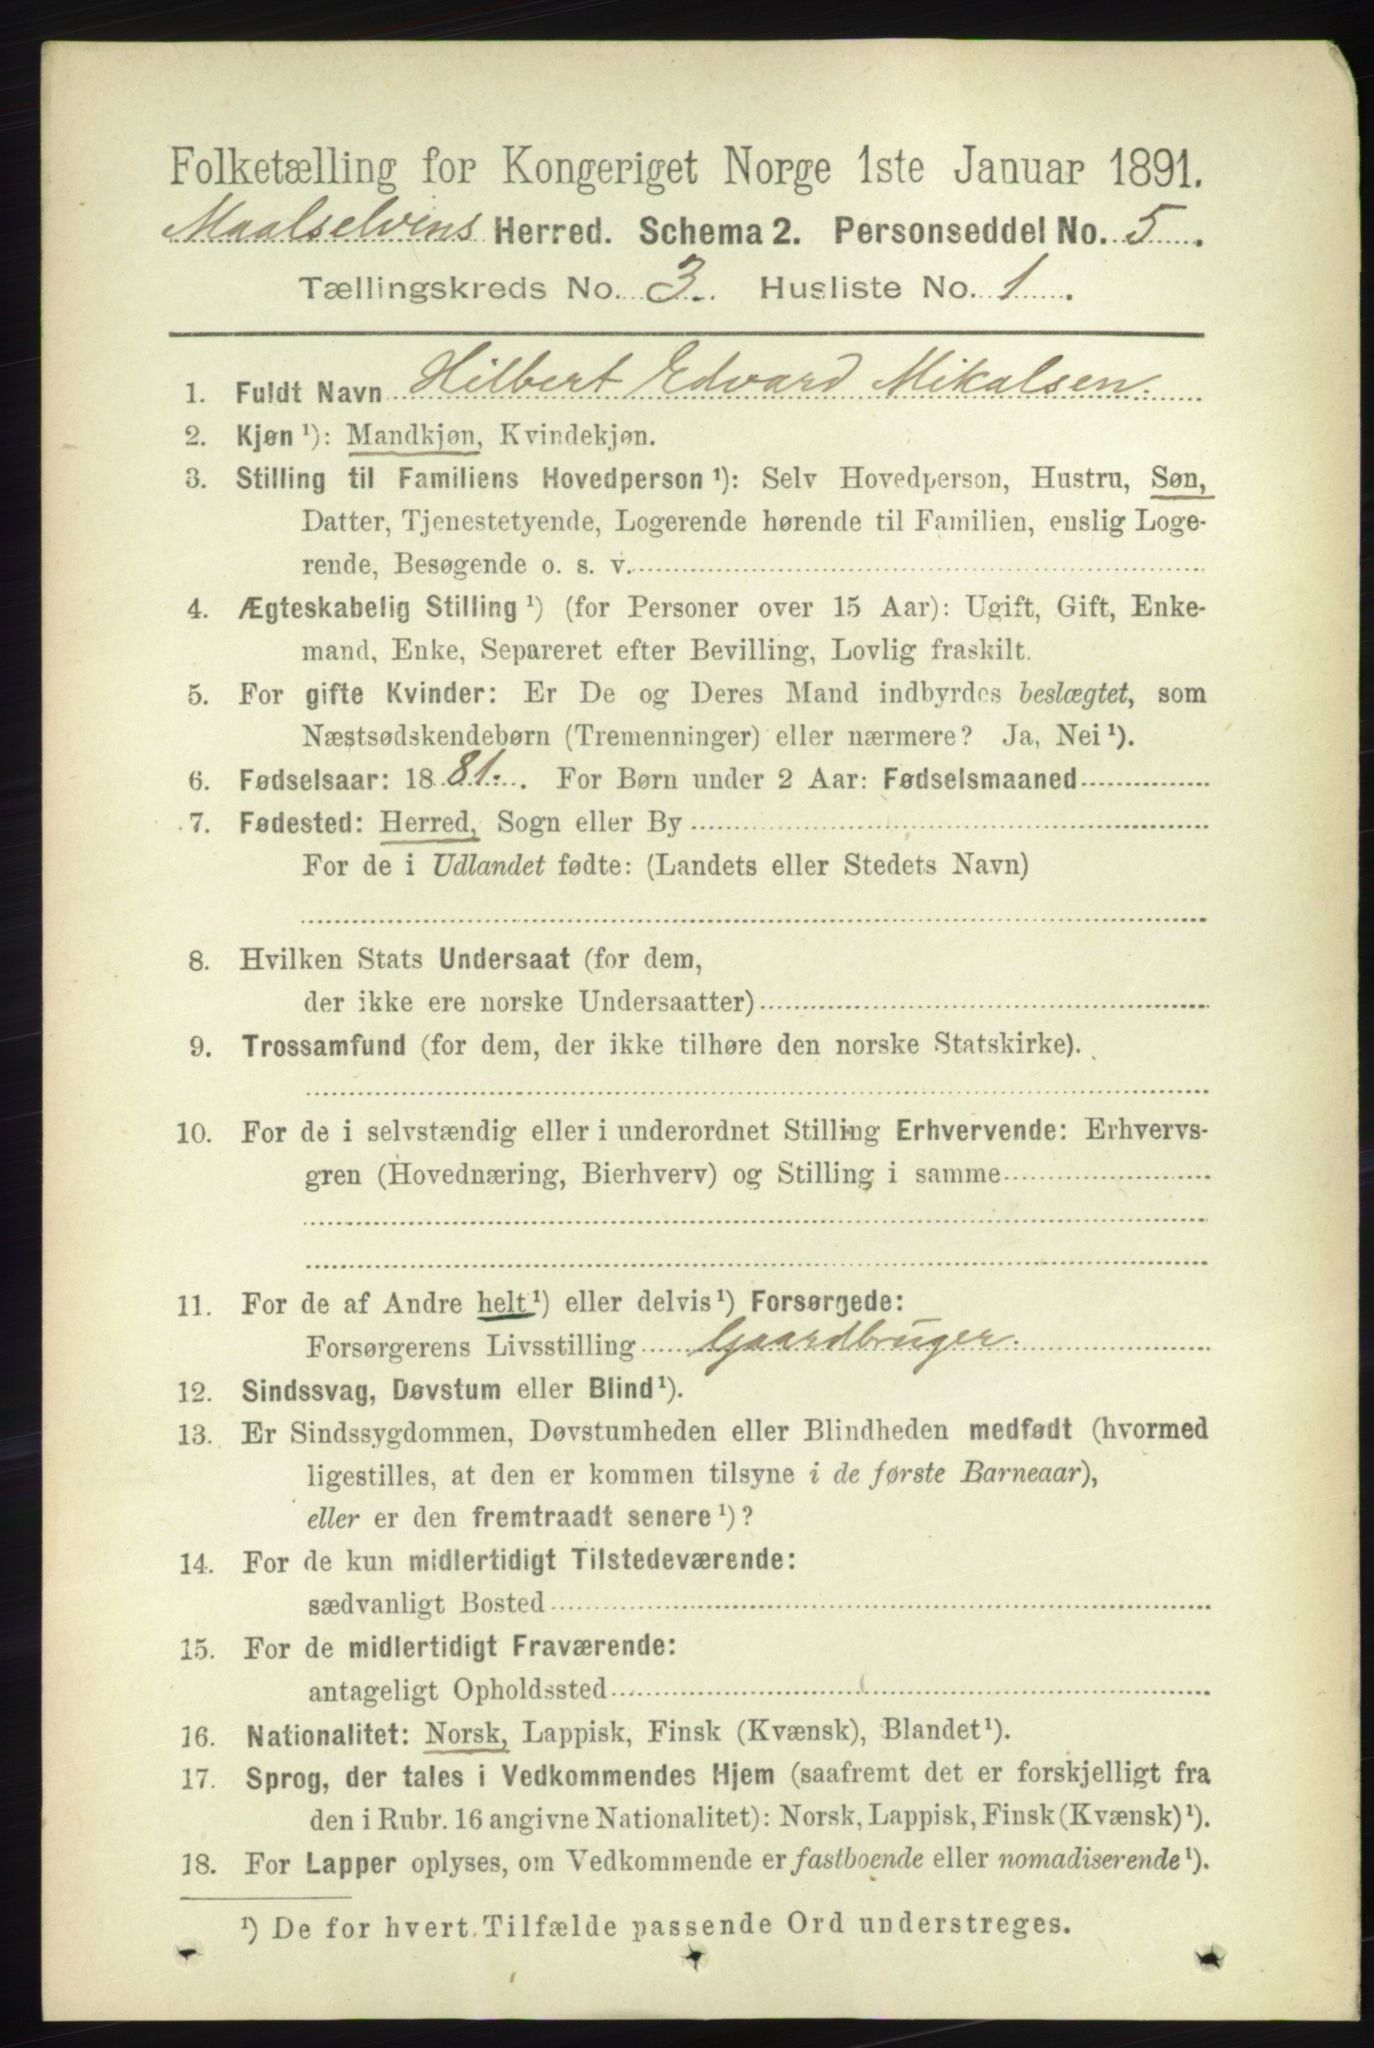 Folketælling for Kongeriget Norge 1ste Januar 1891.
Maalselvens Herred. Schema 2. Personseddel No. 5.
Tællingskreds No. 3. Husliste No. 1.
1. Fuldt Navn Hilbert Edvard Mikalsen.
2. Kjøn ¹): Mandkjøn, Kvindekjøn.
3. Stilling til Familiens Hovedperson ¹): Selv Hovedperson, Hustru, Søn,
Datter, Tjenestetyende, Logerende hørende til Familien, enslig Loge-
rende, Besøgende o. s. v.
4. Ægteskabelig Stilling ¹) (for Personer over 15 Aar): Ugift, Gift, Enke-
mand, Enke, Separeret efter Bevilling, Lovlig fraskilt.
5. For gifte Kvinder: Er De og Deres Mand indbyrdes beslægtet, som
Næstsødskendebørn (Tremenninger) eller nærmere? Ja, Nei ¹).
6. Fødselsaar: 1881. For Børn under 2 Aar: Fødselsmaaned
7. Fødested: Herred, Sogn eller By
For de i Udlandet fødte: (Landets eller Stedets Navn)
8. Hvilken Stats Undersaat (for dem,
der ikke ere norske Undersaatter)
9. Trossamfund (for dem, der ikke tilhøre den norske Statskirke).
10. For de i selvstændig eller i underordnet Stilling Erhvervende: Erhvervs-
gren (Hovednæring, Bierhverv) og Stilling i samme
11. For de af Andre helt ¹) eller delvis ¹) Forsørgede:
Forsørgerens Livsstilling Gaardbruger.
12. Sindssvag, Døvstum eller Blind ¹).
13. Er Sindssygdommen, Døvstumheden eller Blindheden medfødt (hvormed
ligestilles, at den er kommen tilsyne i de første Barneaar),
eller er den fremtraadt senere ¹)?
14. For de kun midlertidigt Tilstedeværende:
sædvanligt Bosted
15. For de midlertidigt Fraværende:
antageligt Opholdssted
16. Nationalitet: Norsk, Lappisk, Finsk (Kvænsk), Blandet ¹).
17. Sprog, der tales i Vedkommendes Hjem (saafremt det er forskjelligt fra
den i Rubr. 16 angivne Nationalitet): Norsk, Lappisk, Finsk (Kvænsk) ¹).
18. For Lapper oplyses, om Vedkommende er fastboende eller nomadiserende ¹).
¹) De for hvert Tilfælde passende Ord understreges.